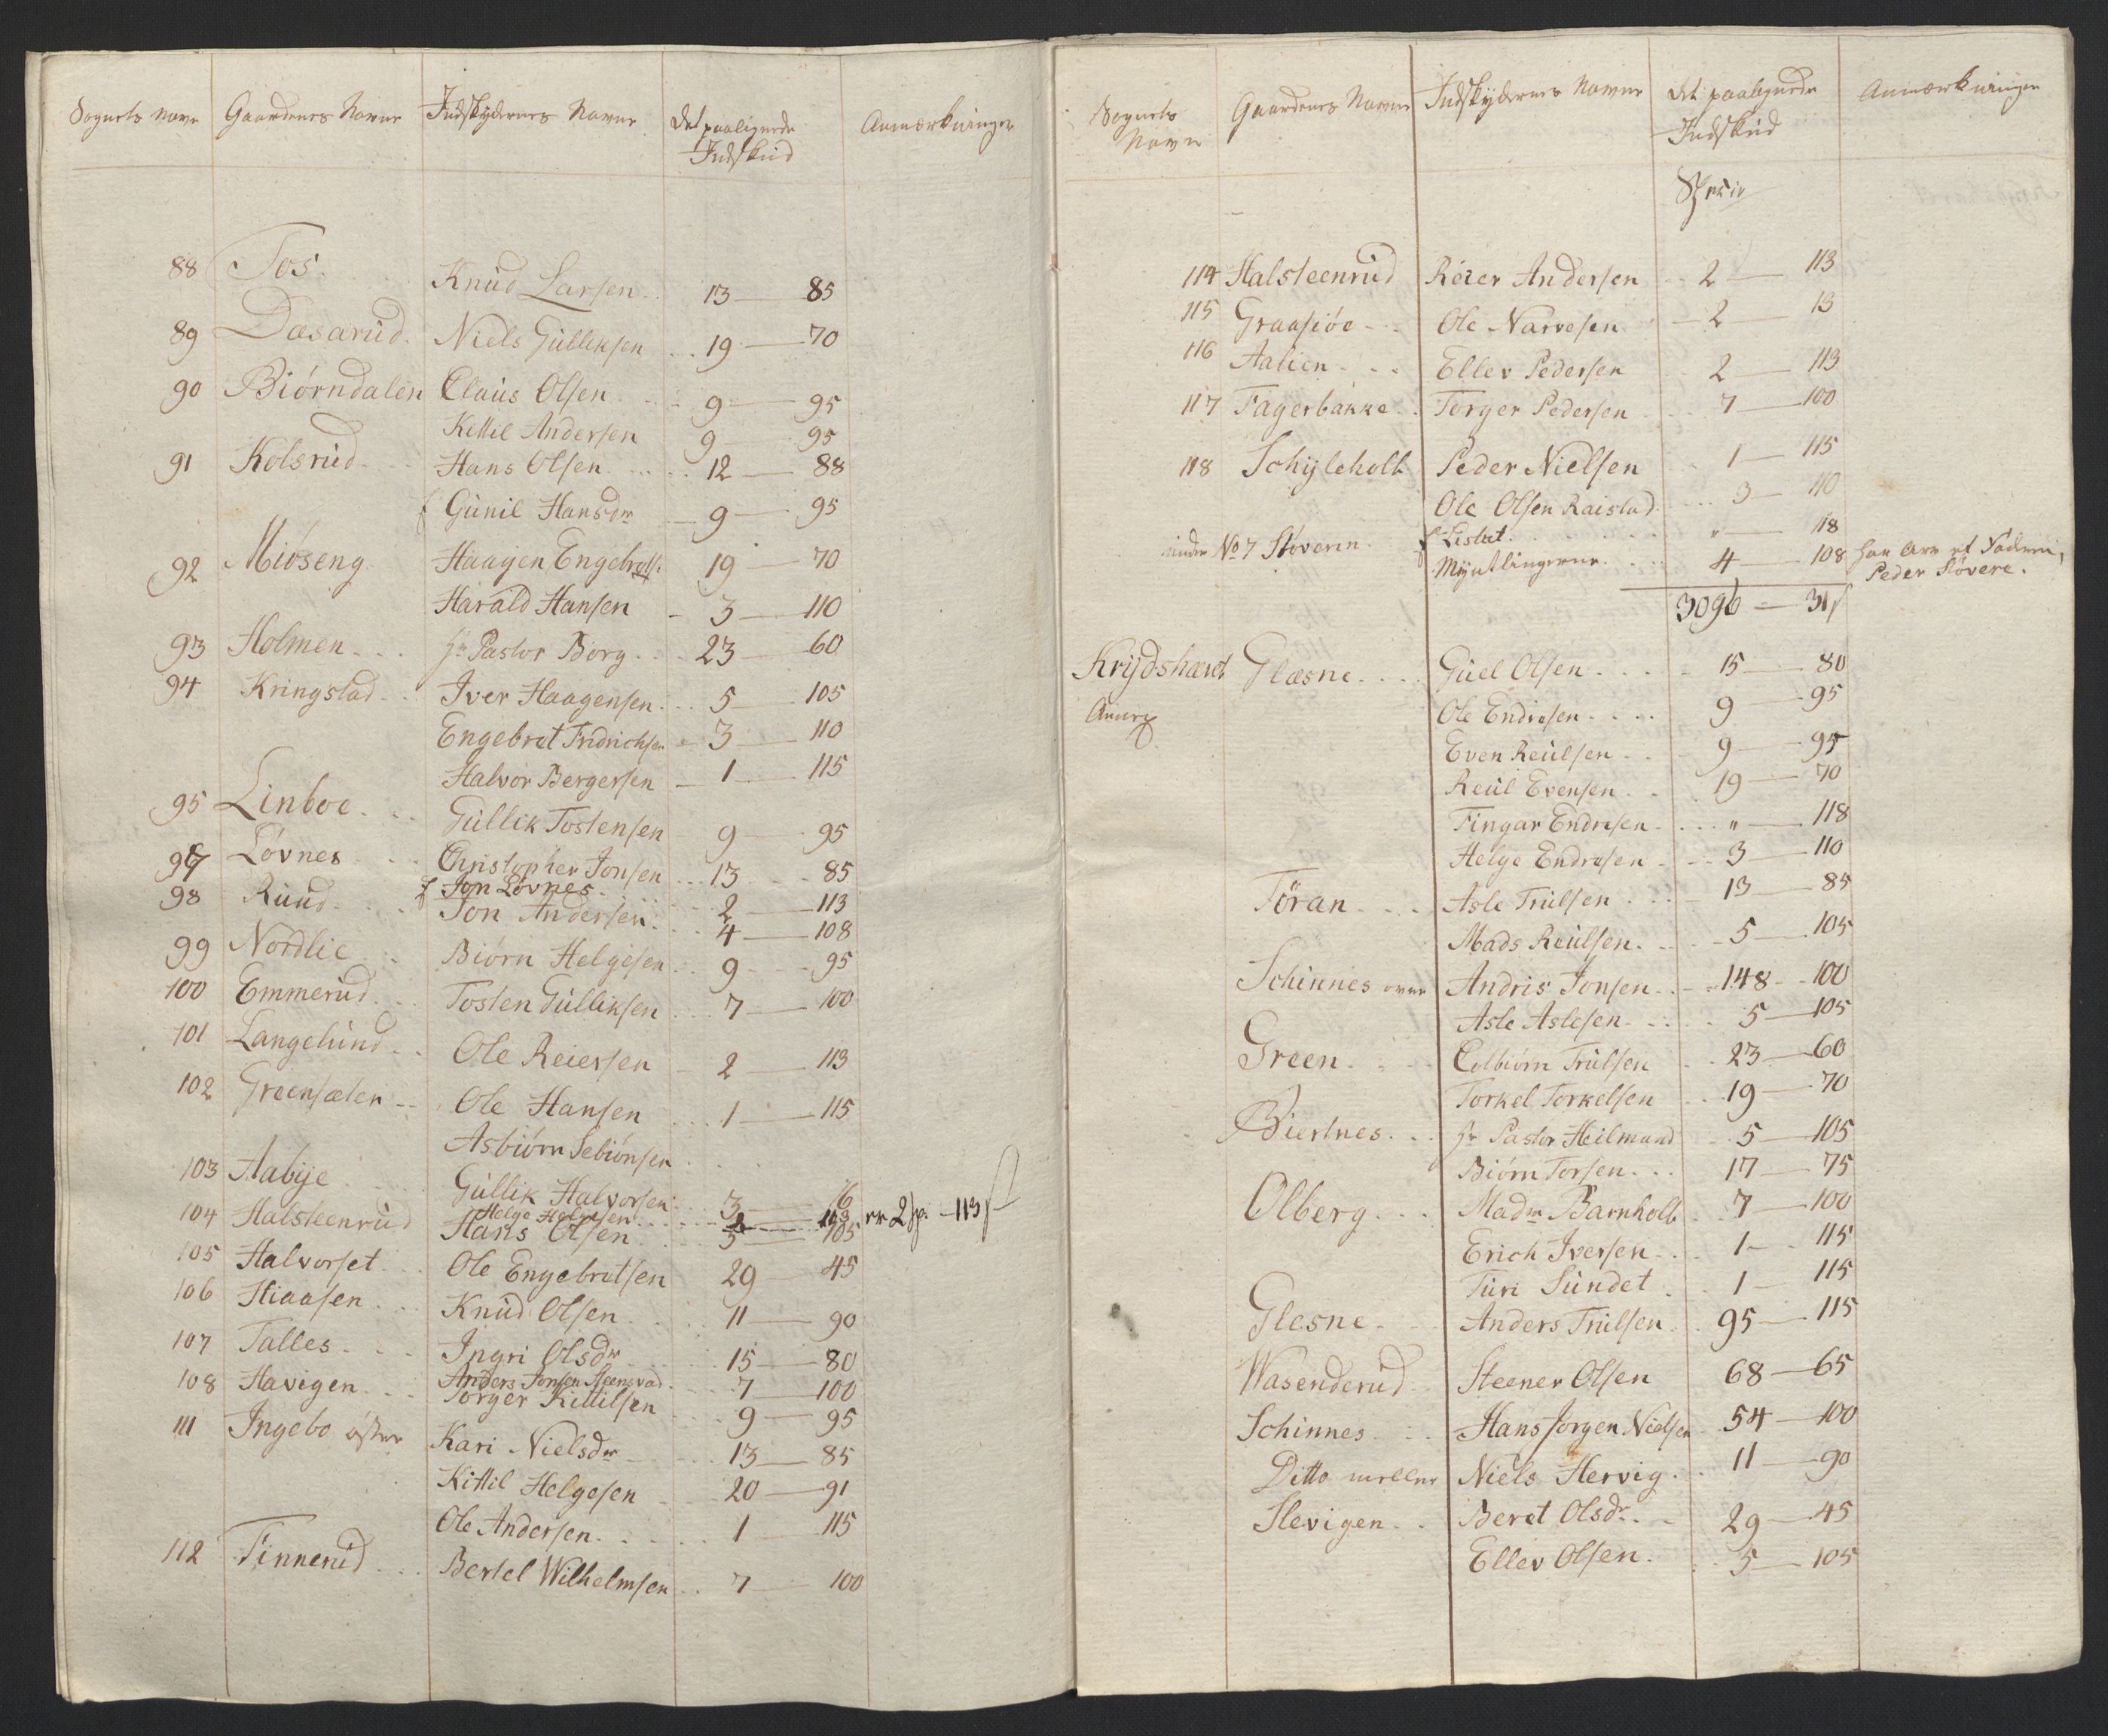 Sognets Navn Gaardenes Navne Indskydernes Navne Det paalignede Indskud Anmærkninger
88 Tos. Knud Larsen 13 — 85
89 Dæsarud. Niels Gulliksen 19 — 70
90 Biørndalen Claus Olsen 9 — 95
Kittil Andersen 9 — 95
91 Kolsrud Hans Olsen 12 — 88
f Gunil Hansdr 9 — 95
92 Miøseng Haagen Engebretsn. 19 — 70
Harald Hansen 3 — 110
93 Holmen Hr Pastor Borg 23 — 60
94 Kringstad Iver Haagensen 5 — 105
Engebret Fridrichsen 3 — 110
Halvor Bergersen 1 — 115
95 Linboe Gullik Tostensen 9 — 95
97 Løvnes Christopher Jonsen 13 — 85
f Jon Løvnes 2 — 113
98 Ruud Jon Andersen 4 — 108
99 Nordlie Biørn Helgesen 9 — 95
100 Emmerud Tosten Gulliksen 7 — 100
101 Langelund Ole Reiersen 2 — 113
102 Greensæter Ole Hansen 1 — 115
Asbiørn Sebiønsen
103 Aabye Gullik Halvorsen 3 — 16
Helge Helgesen 2 — 113 er 2 sp. — 113 s
104 Halsteenrud Hans Olsen 5 — 105
105 Halvorset Ole Engebretsen 29 — 45
106 Hiaasen Knud Olsen 11 — 90
107 Talles Ingri Olsdr 15 — 80
Anders Jonsen Steensvad 7 — 100
108 Havigen Torger Kittilsen 9 — 95
111 Ingebo østre Kari Nielsdr 13 — 85
Kittil Helgesen 20 — 91
Ole Andersen 1 115
112 Finnerud Bertel Wilhelmsen 7 — 100
Sognets Navn Gaardenes Navne Indskydernes Navne Det paalignede Indskud Anmærkninger
Specie
114 Halsteenrud Reier Andersen 2 — 113
115 Graasiøe Ole Narvesen 2 — 13
116 Aalien Ellev Pedersen 2 — 113
117 Fagerbakke Torger Pedersen 7 — 100
118 Schyleholt Peder Nielsen 1 — 115
Ole Olsen Raistad 3 — 110
f Lisbet " — 118
under No 7 Støveren f Myntlingerne 4 — 108 har Arv ef Faderen,
Peder Støvere.
3096 — 31 s
Krydshærad Glæsne Guel Olsen 15 — 80
Annex Ole Endresen 9 — 95
Even Reulsen 9 — 95
Reul Evensen 19 — 70
Fingar Endresen " — 118
Helge Endresen 3 — 110
Töran Asle Trulsen 13 — 85
Mads Reulsen 5 — 105
Schinnes øvre Andris Jonsen 148 — 100
Asle Aslesen 5 — 105
Green Colbiørn Trulsen 23 — 60
Torkel Torkelsen 19 — 70
Biertnes Hr Pastor Heilmand 5 — 105
Biørn Torsen 17 — 75
Olberg Madm Barnholt 7 — 100
Erich Iversen 1 — 115
Turi Sundet 1 — 115
Glesne Anders Trulsen 95 — 115
Wasenderud Steener Olsen 68 — 65
Schinnes Hans Jørgen Nielsen 54 — 100
Ditto mellem Niels Hervig 11 — 90
Slevigen Beret Olsdr 29 — 45
Ellev Olsen 5 — 105